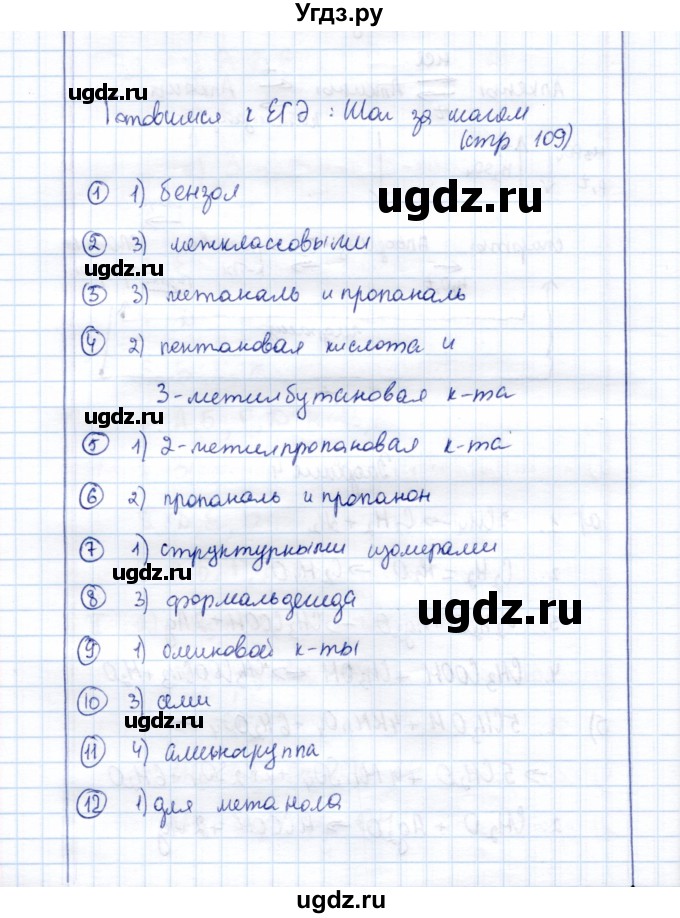 Угдз.ру
ugdz.ru
Готовимся к ЕГЭ: Шаг за шагом
(стр 109)
① 1) бензол
ugdz.ru
② 3) межклассовыми
ugdz.ru
③ 3) метаналь и пропаналь
④ 2) пентановая кислота и
3-метилбутановая к-та
ugdz.ru
⑤ 1) 2-метилпропановая к-та
⑥ 2) пропаналь и пропанон
⑦ 1) структурными изомерами
ugdz.ru
⑧ 3) формальдегида
ugdz.ru
⑨ 1) олеиновой к-ты
⑩ 3) семи
ugdz.ru
⑪ 4) аминогруппа
⑫ 1) для метанола
ugdz.ru